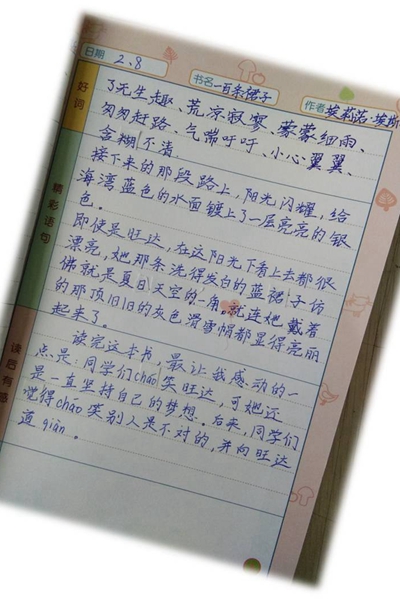 日期 2.8 书名 一百条裙子 作者 埃莉诺·埃斯
好词
了无生趣、荒凉寂寥、蒙蒙细雨、
匆匆赶路、气喘吁吁、小心翼翼、
含糊不清
精彩语句
接下来的那段路上，阳光闪耀，给
海湾蓝色的水面镀上了一层亮亮的银
色。
即使是旺达，在这阳光下看上去都很
漂亮，她那条洗得发白的蓝裙子仿
佛就是夏日天空的一角。就连她戴着
的那顶旧旧的灰色滑雪帽都显得亮丽
起来了。
读后有感
读完这本书，最让我感动的一
点是：同学们cháo笑旺达，可她还
是一直坚持自己的梦想。后来，同学们
觉得cháo笑别人是不对的，并向旺达
道qiàn。